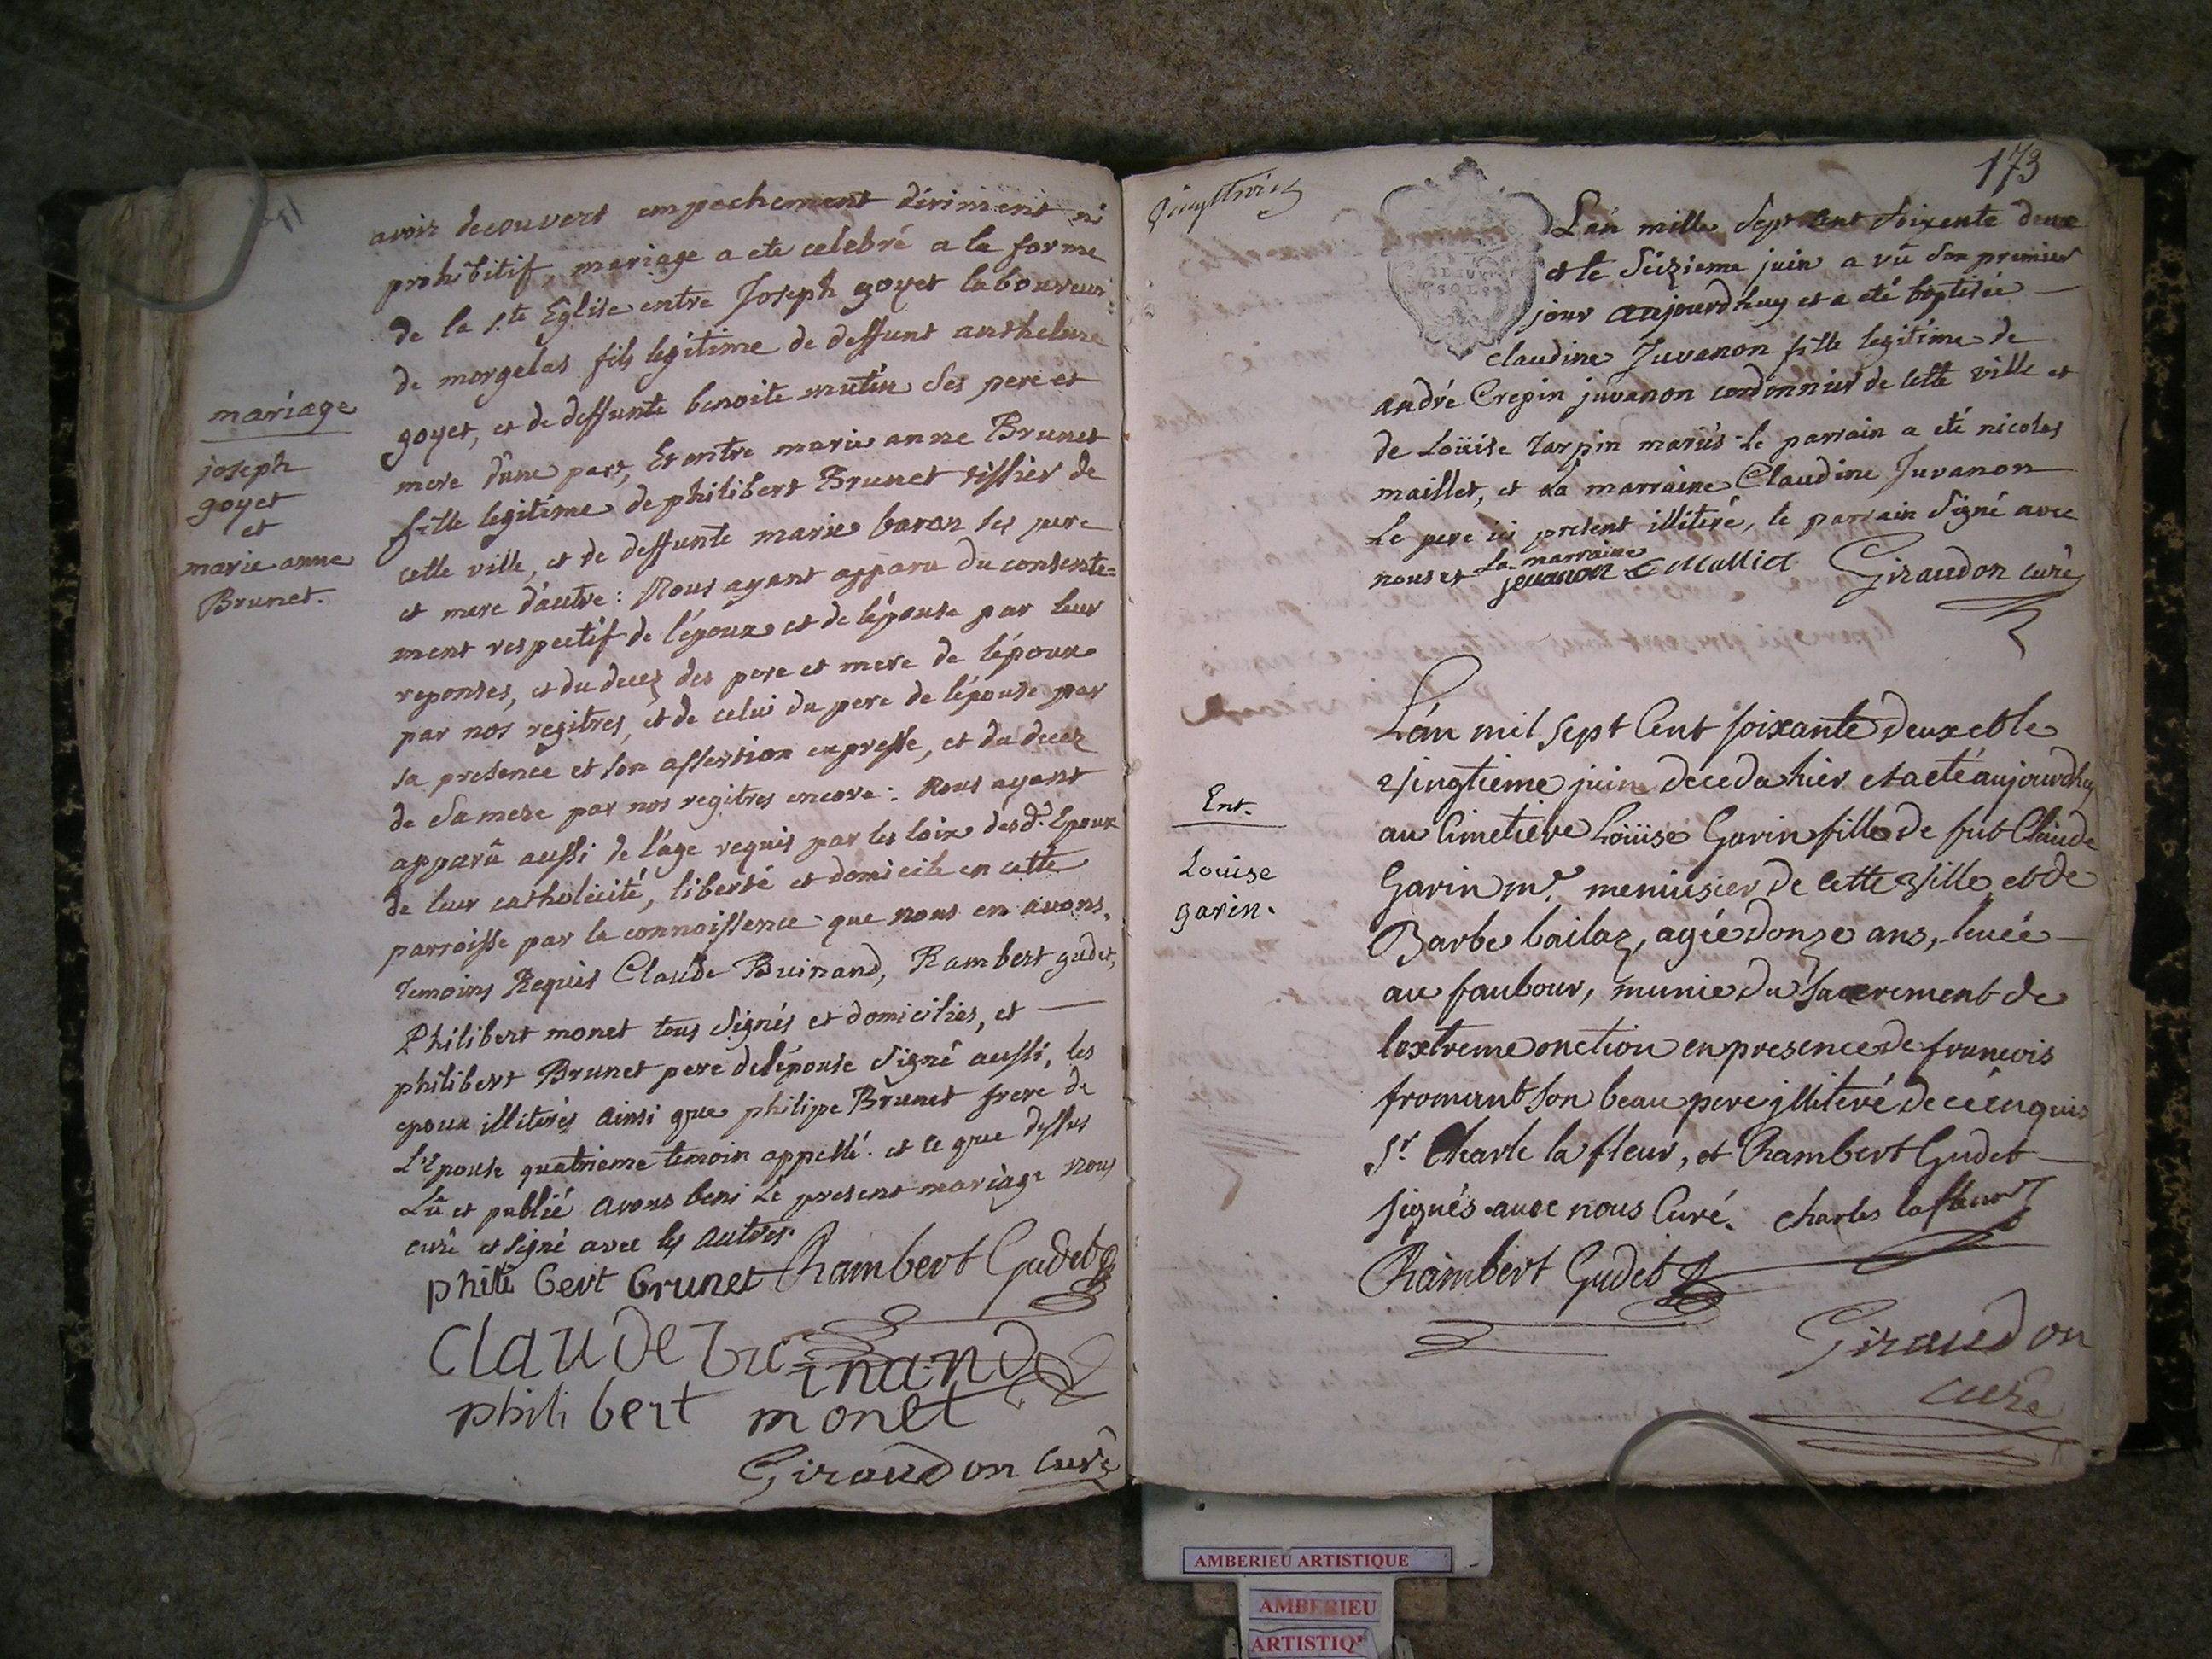 avoir decouvert empechement diriment ni
prohibitif, mariage a ete celebré a la forme
de la s.te Eglise entre Joseph goyet laboureur
de morgelas fils legitime de deffunt anthelme
goyet, et de deffunte benoite mutin ses pere et
mere d'une part, Et entre marie anne Brunet
fille legitime de philibert Brunet tissier de
cette ville, et de deffunte marie baron ses pere
et mere d'autre: Nous ayant apparu du consente=
ment respectif de l'époux et de l'épouse par leur
reponses, et du decez des pere et mere de l'époux
par nos regitres, et de celui du pere de l'épouse par
sa presence et son assertion expresse, et du decez
de sa mere par nos regitres encore: Nous ayant
apparû aussi de l'age requis par les loix desd. Epoux
de leur catholicité, liberté et domicile en cette
parroisse par la connoissence que nous en avons.
Temoins Requis Claude Buinand, Rambert gudet,
Philibert monet tous signés et domiciliés, et
philibert Brunet pere de l'épouse signé aussi, les
epoux illiterés ainsi que philipe Brunet frere de
L'Epouse quatrieme temoin appellé. et ce que dessus
Lû et publié avons beni le present mariage nous
curé et signé avec les autres.
phili bert brunet Rambert Gudet
claude buinand
phili bert monet
Giraudon curé
mariage
joseph
goyet
et
marie anne
Brunet.
173
L'an mille sept cent soixente deux
et le seizieme juin a vû son premier
jour aujourdhuy et a eté baptisée
claudine Juvanon fille legitime de
andré Crepin juvanon cordonnier de cette ville et
de Loüise Tarpin mariés. Le parrain a eté nicolas
maillet, et la marraine Claudine Juvanon
Le pere ici present illiteré, le parrain signé avec
nous et La marraine
jouanon Giraudon curé
SOLS
L'an mil sept Cent soixante deux et le
vingtieme juin deceda hier et a eté aujourdhuy
au Cimetiere Loüise Garin fille de fut Claude
Garin m.e menuisier de cette ville et de
Barbe bailaz, agée donze ans, levée
au faubour, munie du sacrement de
lextreme onction en presence de francois
fromant son beau pere jlliteré de ce enquis
Sr. Charle la fleur, et Rambert Gudet
signés avec nous Curé. charles lafleur
Rambert Gudet
Giraudon
curé
Ent.
Louise
garin.
AMBERIEU ARTISTIQUE
AMBERIEU
ARTISTIQ